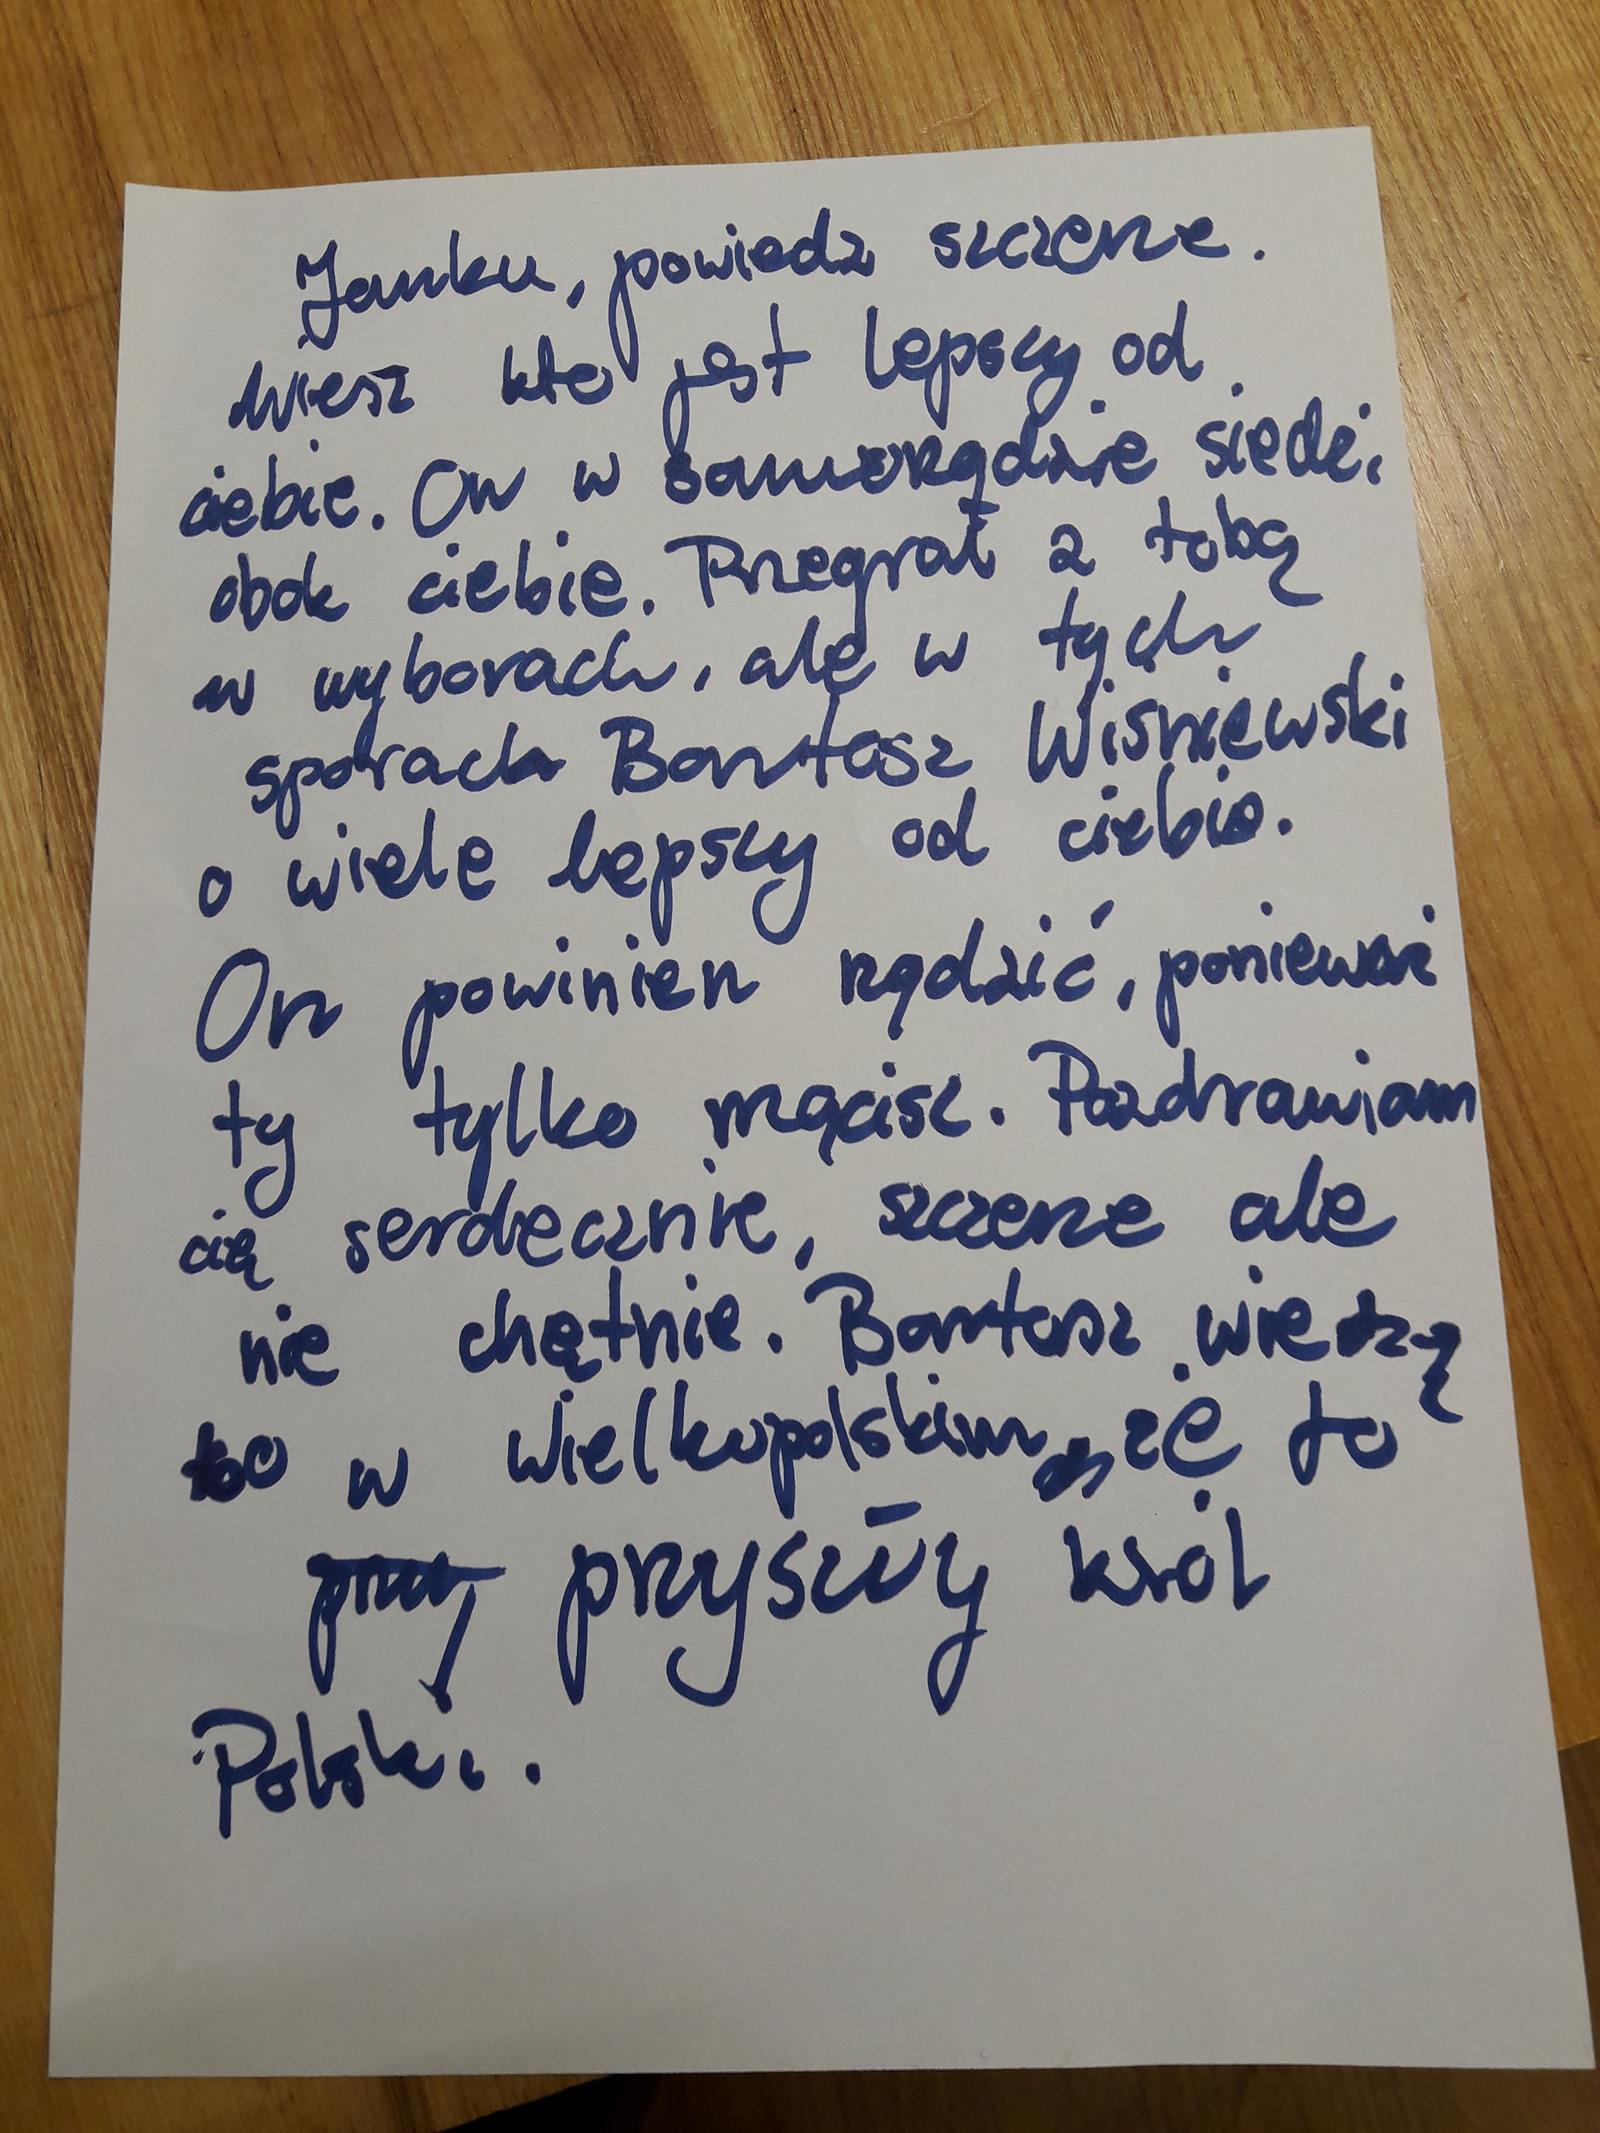 Janku, powiedz szczerze.
Wiesz kto jest lepszy od
ciebie. On w samorządzie siedzi
obok ciebie. Przegrał z tobą
w wyborach, ale w tych
sporach Bartosz Wiśniewski
o wiele lepszy od ciebie.
On powinien rządzić, ponieważ
ty tylko mącisz. Pozdrawiam
cię serdecznie, szczerze ale
nie chętnie. Bartosz wiedzą
to w wielkopolskim, że to
przyszły król
Polski.